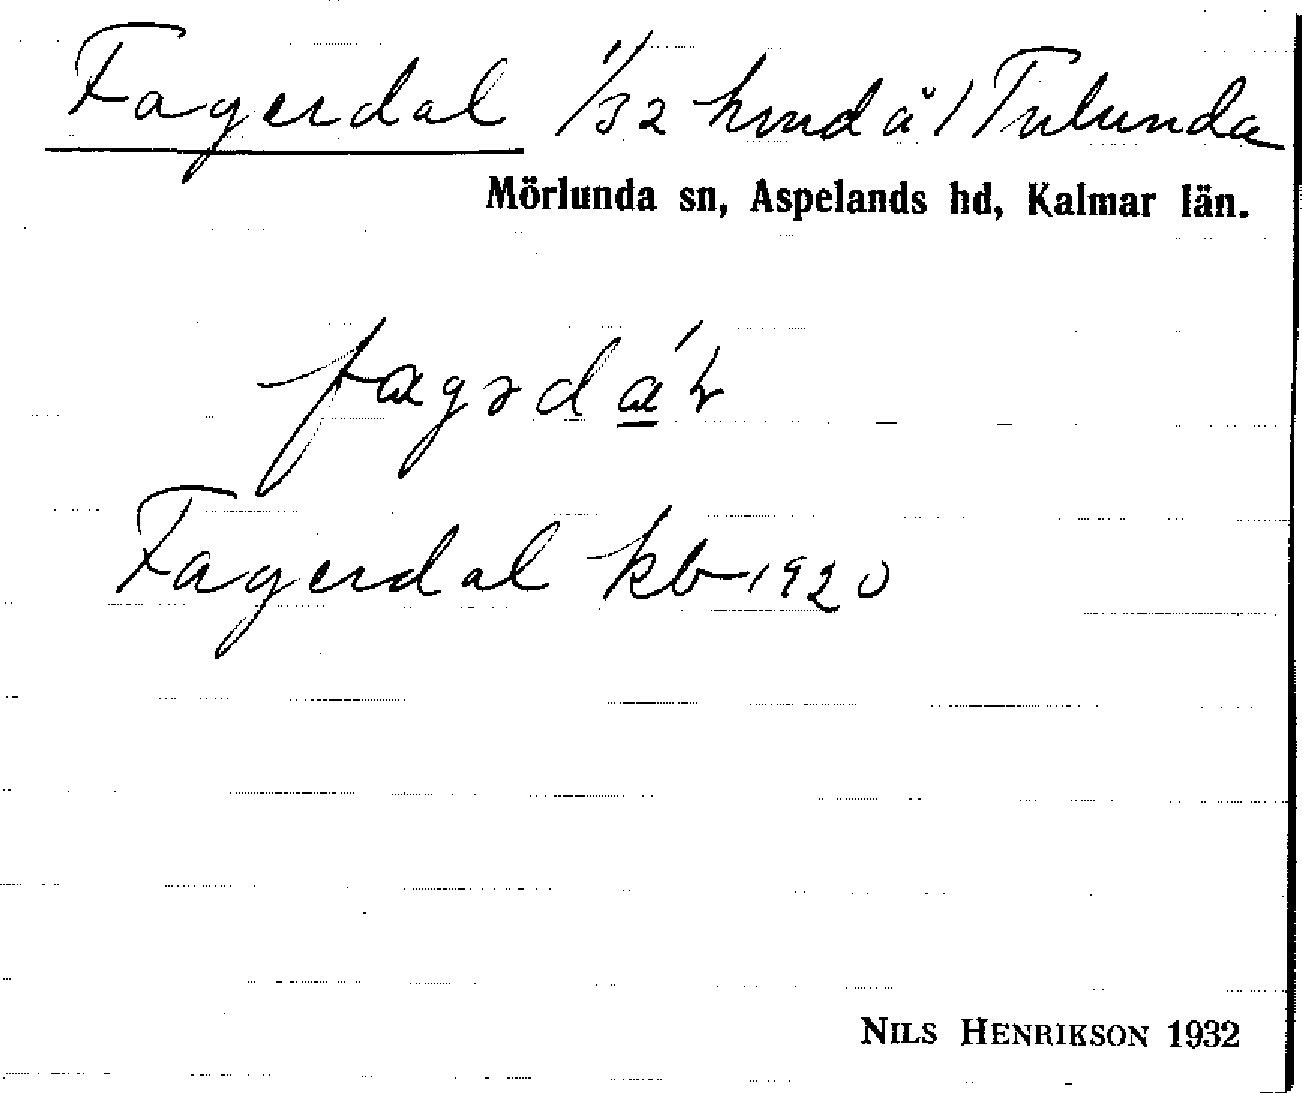 Fagerdal 1/32 hmd å 1 Tulunda
Mörlunda sn, Aspelands hd, Kalmar län.
Fagerdal kb 1920
NILS HENRIKSON 1932